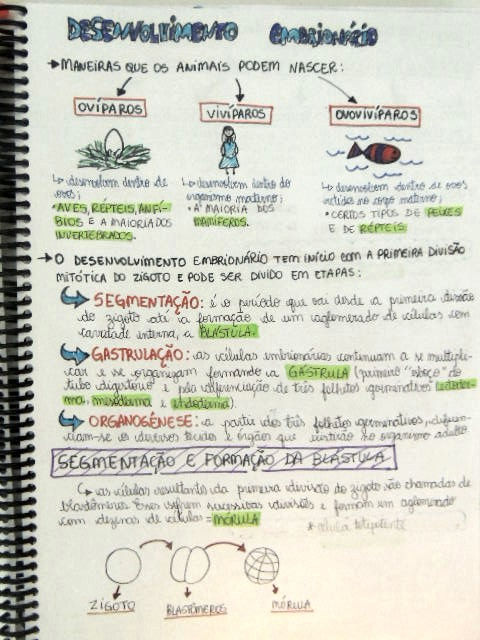 DESENVOLVIMENTO EMBRIONÁRIO
→ MANEIRAS QUE OS ANIMAIS PODEM NASCER:
OVÍPAROS
VIVÍPAROS
OVOVIVÍPAROS
↳ desenvolvem dentro de
ovos;
• AVES, RÉPTEIS, ANFÍ-
BIOS E A MAIORIA DOS
INVERTEBRADOS.
↳ desenvolvem dentro do
organismo materno;
• A MAIORIA DOS
MAMÍFEROS.
↳ desenvolvem dentro de ovos
retidos no corpo materno;
• CERTOS TIPOS DE PEIXES
E DE RÉPTEIS.
→ O DESENVOLVIMENTO EMBRIONÁRIO TEM INÍCIO COM A PRIMEIRA DIVISÃO
MITÓTICA DO ZIGOTO E PODE SER DIVIDO EM ETAPAS:
SEGMENTAÇÃO: é o período que vai desde a primeira divisão
do zigoto até a formação de um aglomerado de células com
cavidade interna, a BLÁSTULA.
GASTRULAÇÃO: as células embrionárias continuam a se multipli-
car e se organizam formando a GÁSTRULA (primeiro "esboço" do
tubo digestório) e pela diferenciação de três folhetos germinativos (ectoder-
ma, mesoderma e endoderma).
ORGANOGÊNESE: a partir dos três folhetos germinativos, diferen-
ciam-se os diversos tecidos e órgãos que existirão no organismo adulto.
SEGMENTAÇÃO E FORMAÇÃO DA BLÁSTULA
↳ as células resultantes da primeira divisão do zigoto são chamadas de
blastômeros. Esses sofrem sucessivas divisões e formam um aglomerado
com dezenas de células = MÓRULA
* célula totipotente
ZIGOTO
BLASTÔMEROS
MÓRULA